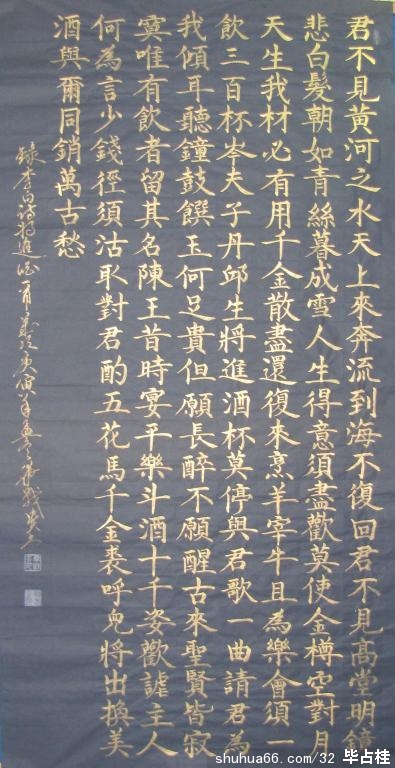 君不見黃河之水天上來奔流到海不復回君不見髙堂明鏡
悲白髮朝如青絲暮成雪人生得意須盡歡莫使金樽空對月
天生我材必有用千金散盡還復來烹羊宰牛且為樂會須一
飲三百杯岑夫子丹邱生將進酒杯莫停與君歌一曲請君為
我傾耳聽鐘鼓饌玉何足貴但願長醉不願醒古來聖賢皆寂
寞唯有飲者留其名陳王昔時宴平樂斗酒十千姿歡謔主人
何為言少錢徑須沽取對君酌五花馬千金裘呼兒將出換美
酒與爾同銷萬古愁
錄李白詩將進酒一首歲次庚寅年
shuhua66.com/32 毕占桂